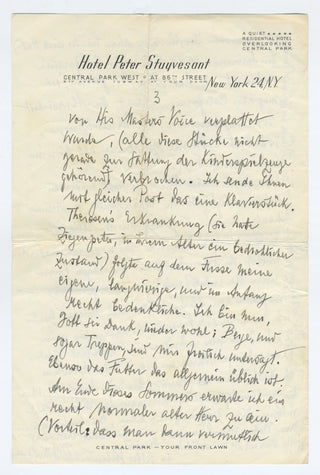 A QUIET
RESIDENTIAL HOTEL
OVERLOOKING
CENTRAL PARK
Hotel Peter Stuyvesant
CENTRAL PARK WEST AT 86TH STREET
New York 24, N.Y.
3
von His Masters Voice verplattet
wurde, (alle diese Stücke nicht
gerade zur Gattung der Kinderspielzeuge
gehörend) verbrochen. Ich sende Ihnen
mit gleicher Post das eine Klavierstück.
Theresens Erkrankung (sie hatte
Ziegenpeter, in ihrem Alter ein bedrohlicher
Zustand) folgte auf dem Fusse meine
eigene, langwierige, und im Anfang
recht bedenkliche. Ich bin nun,
Gott sei Dank, wieder wohl; Berge, und
sogar Treppen, sind mir freilich untersagt.
Ebenso das Futter das allgemein üblich ist.
Am Ende dieses Sommers erwarte ich ein
recht normaler alter Herr zu sein.
(Vorteil: dass man dann vermutlich
CENTRAL PARK — YOUR FRONT LAWN